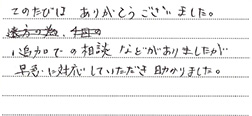 このたびは ありがとうございました。
遠方の為、今回の
追加での相談 などがありましたが
早急に対応していただき助かりました。